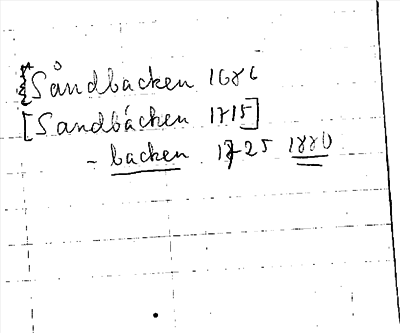 Såndbacken 1686
[Sandbácken 1715]
- backen 1725 1880